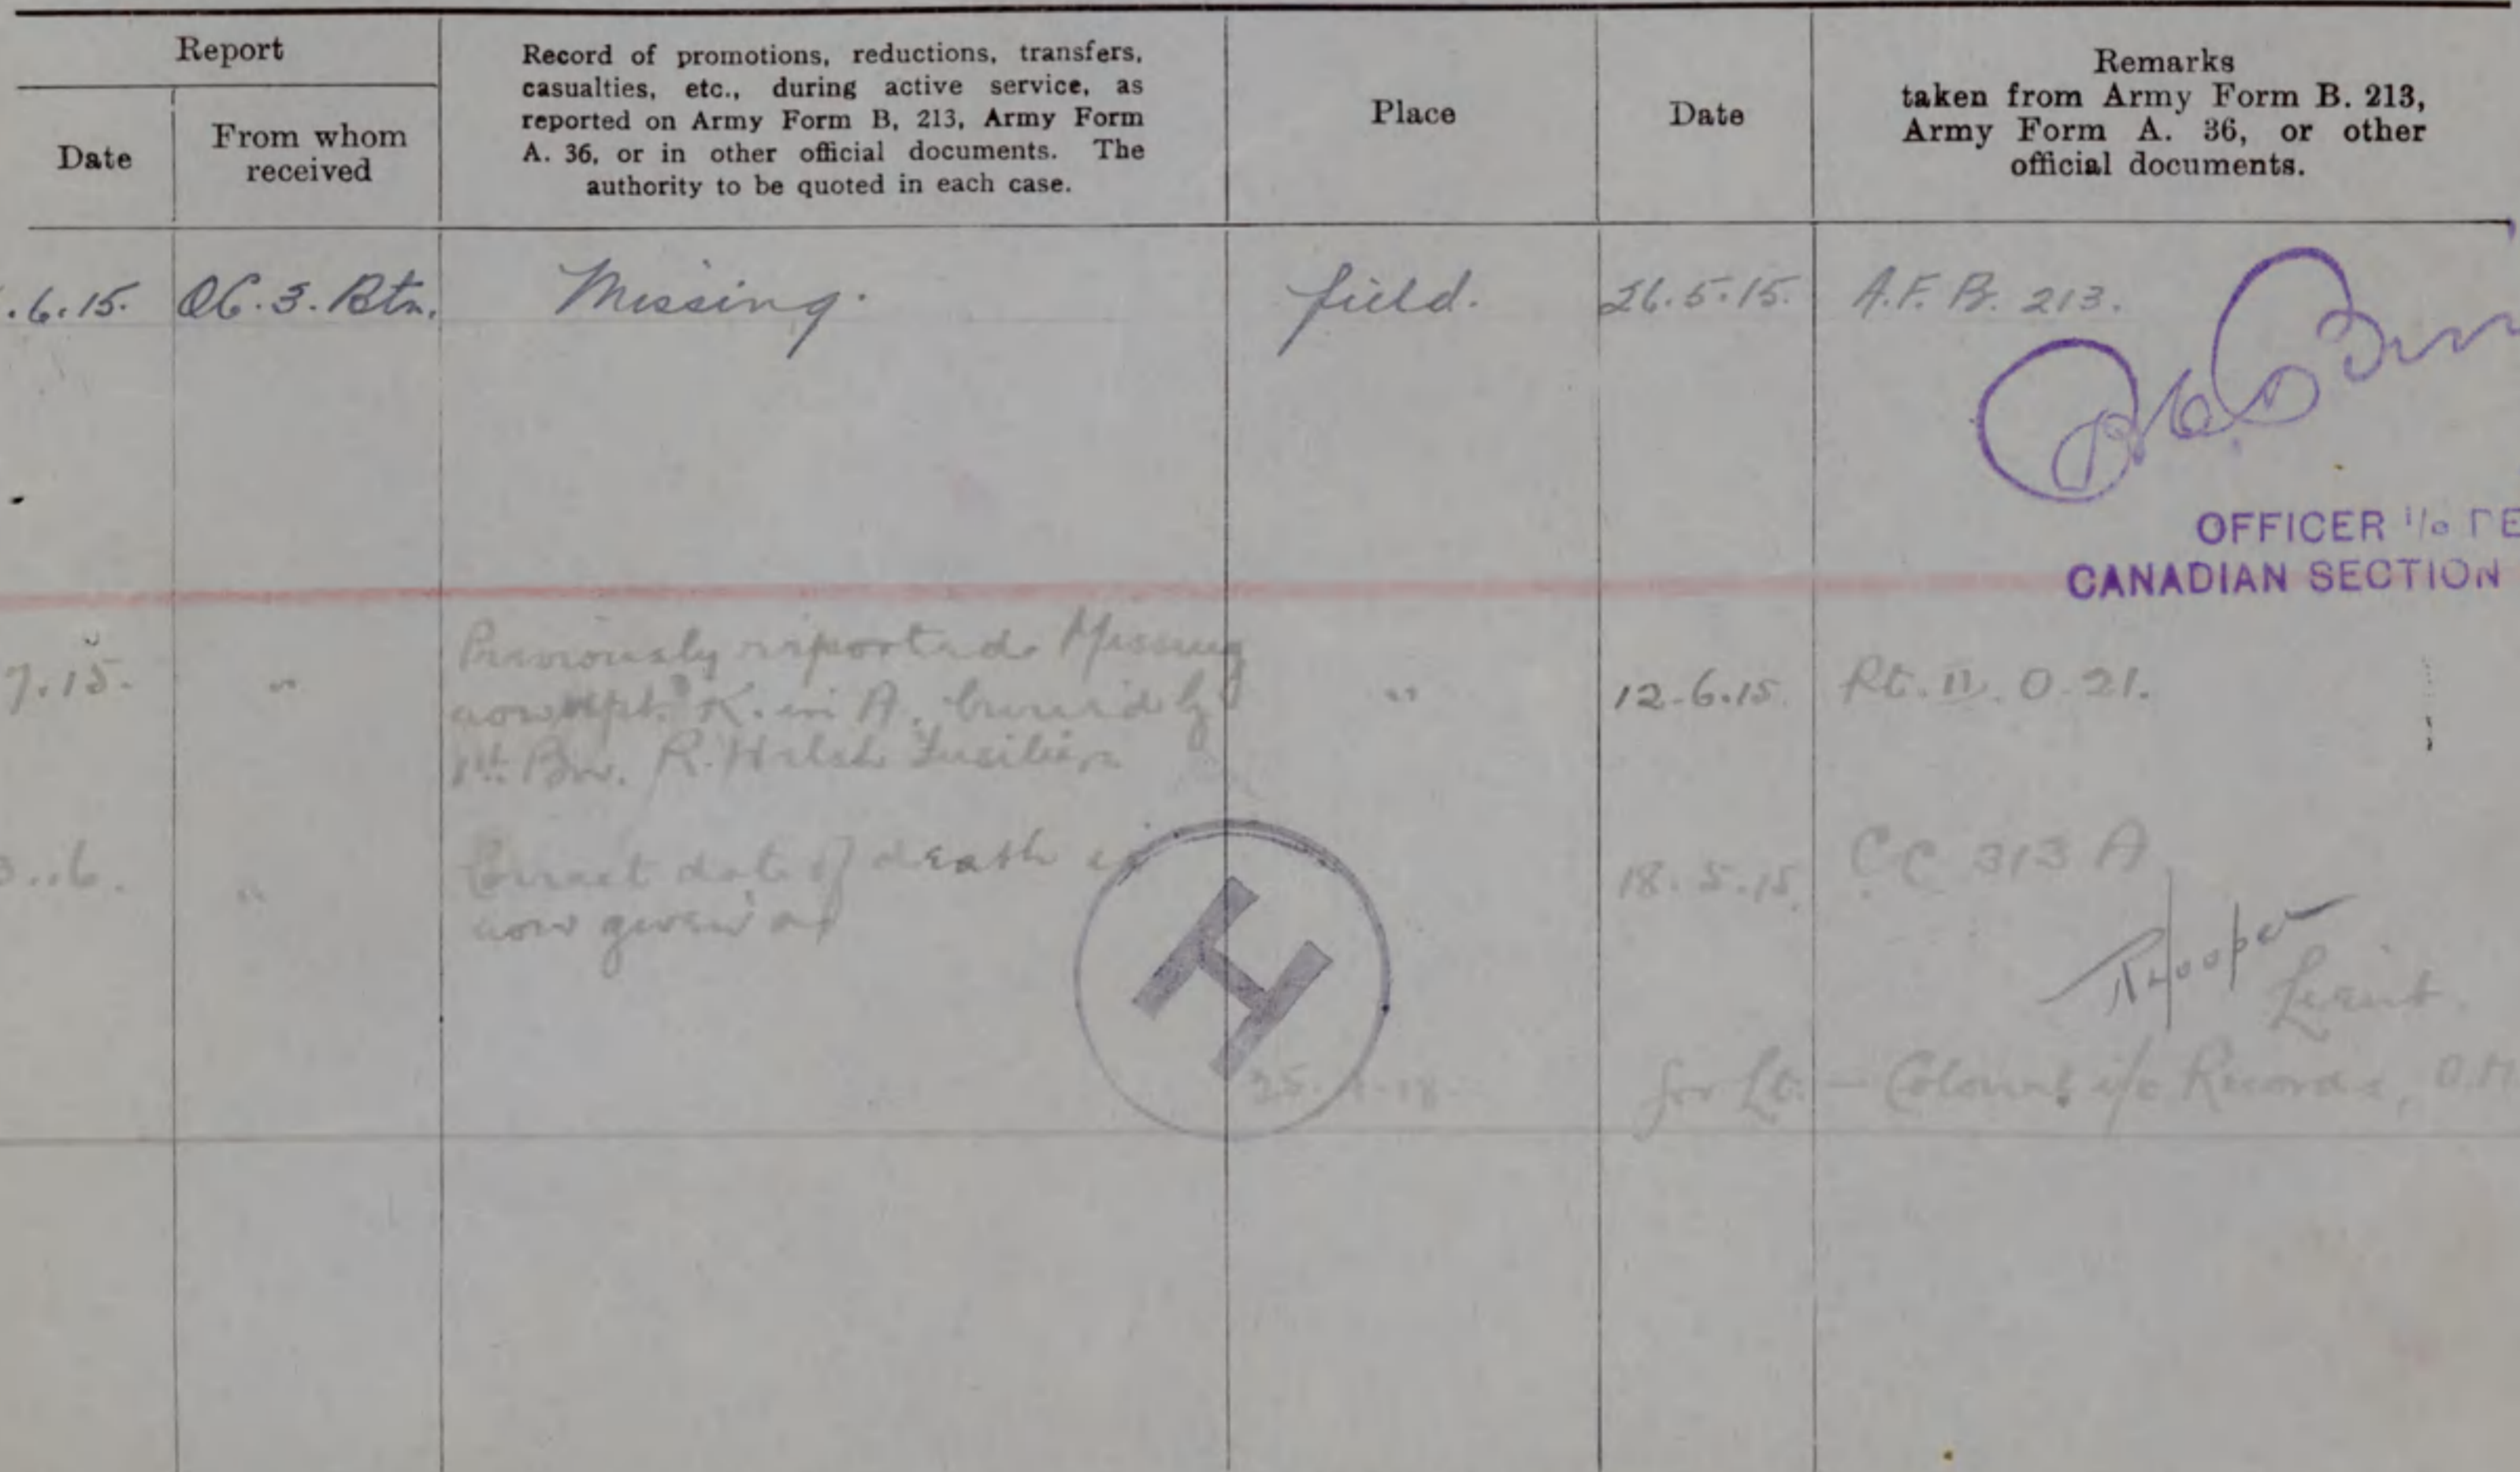 Report
Date
From whom
received
Record of promotions, reductions, transfers,
casualties, etc., during active service, as
reported on Army Form B, 213, Army Form
A. 36, or in other official documents. The
authority to be quoted in each case.
Place
Date
Remarks
taken from Army Form B. 213,
Army Form A. 36, or other
official documents.
.6.15. OC. 3. Btn. Missing. field. 26.5.15. A.F.B. 213.
OFFICER i/c
CANADIAN SECTION
7.15. " Previously reported Missing " 12.6.15. Pt. II. O. 21.
now rept. K. in A. buried by
1st Bn. R. Welsh Fusiliers
" Correct date of death is 18.5.15. CC 313 A
now given as
H
Hooper
Lieut.
for Lt. - Colonel i/c Records, O.M